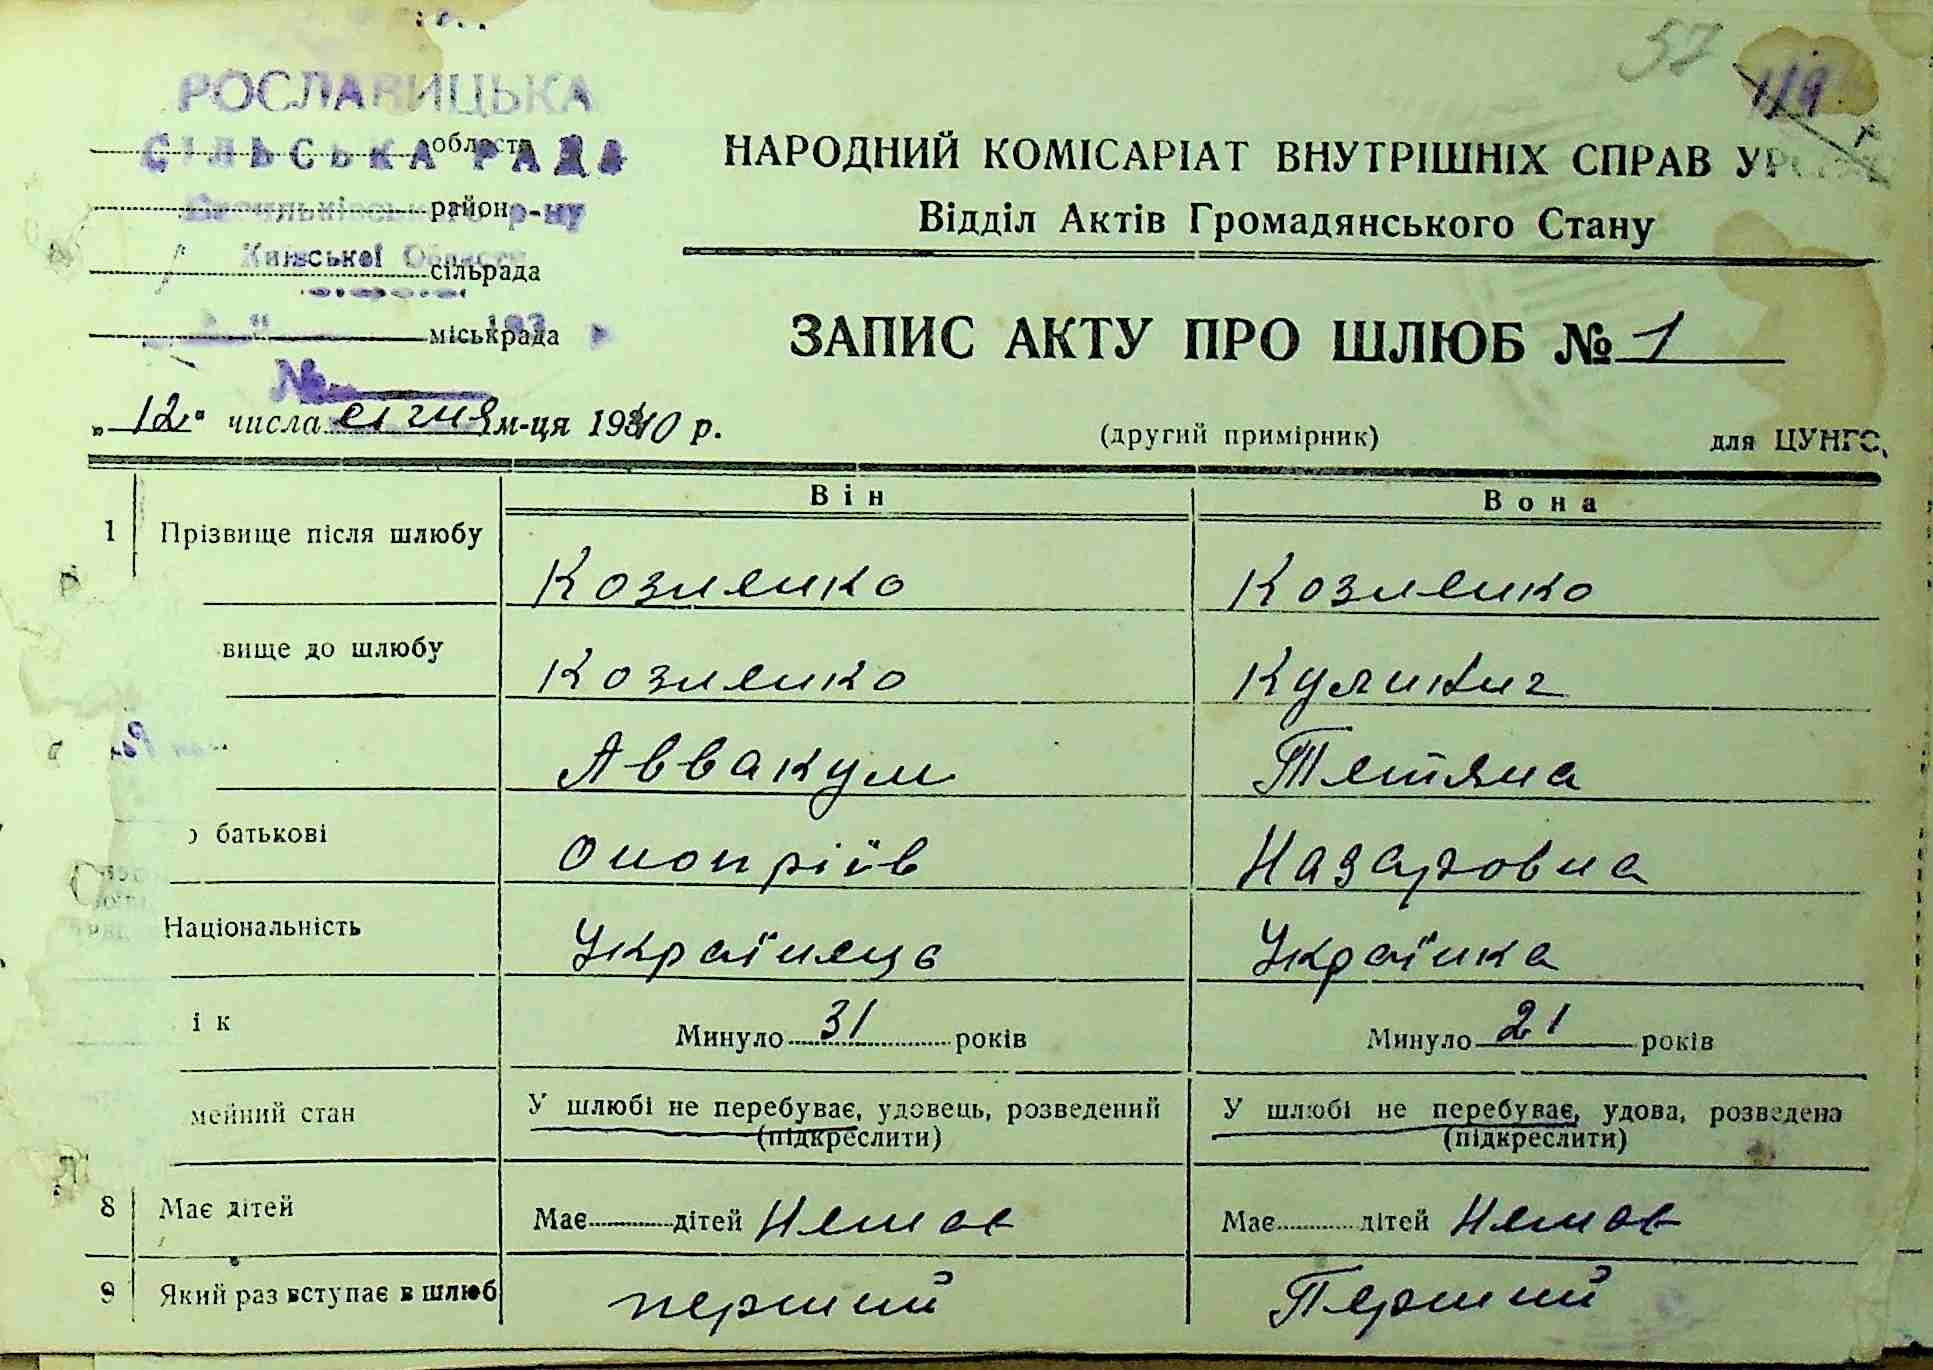 57
119
РОСЛАВИЦЬКА
СІЛЬСЬКА РАДА
область
район
р-ну
Київської Області
сільрада
міськрада
№
НАРОДНИЙ КОМІСАРІАТ ВНУТРІШНІХ СПРАВ УРСР
Відділ Актів Громадянського Стану
ЗАПИС АКТУ ПРО ШЛЮБ № 1
„12" числа січня м-ця 1940 р.
(другий примірник)
для ЦУНГО,
Він
Вона
1 Прізвище після шлюбу
Козленко
Козленко
вище до шлюбу
Козленко
Куликич
Аввакум
Тетяна
о батькові
Онопріїв
Назаровна
Національність
Українець
Українка
ік
Минуло 31 років
Минуло 21 років
мейний стан
У шлюбі не перебуває, удовець, розведений
(підкреслити)
У шлюбі не перебуває, удова, розведена
(підкреслити)
8 Має дітей
Має дітей Немає
Має дітей Немає
9 Який раз вступає в шлюб
перший
Перший